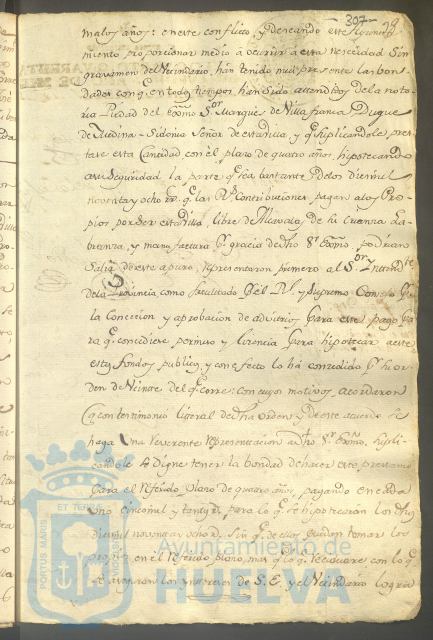 307
malos años: en este conflicto, y deseando este Ayunta
miento proporcionar medio a ocurrir a esta necesidad sin
gravamen del Vecindario, han tenido mui presente las bon
dades con q. en todos tiempos han sido attendidos de la noto
ria Piedad del Exmo Sor Marques de Villafranca Duque
de Medina-Sidonia Señor de esta villa, y q. suplicandole pres
tase esta Cantidad con el plazo de quatro años, hipotecando
a su seguridad la parte q. sea bastante de los diez mil
noventa y ocho rr. q. las Rs Contribuciones pagan a los Pro
pios por ser esta Villa libre de Alcavalas de la
branza, y manufactura pr gracia de dho Sr Exmo, podrian
salir de este apuro, representaron primero al Sor Intend
de la Provincia como facultado pr el Rl y Supremo Consejo pa
la concecion y aprobacion de advitrios para este pago, pa
ra q. concediere permiso y licencia para hipotecar a este
estos fondos publicos, y con efecto lo ha concedido pr su or
den de veinte del q. corre: con cuyos motivos acordaron
q. con testimonio literal de dha orden, y de este acuerdo se
haga una reverente representacion a dho Sr Exmo, supli
candole se digne tener la bondad de hacer este prestamo
para el referido plazo de quatro años, pagando en cada
uno cinco mil y tantos rr, para lo q. se hipotecaran los
diez mil noventa y ocho rr, sin q. de ellos puedan tomar los
propios en el referido plazo, mas q. lo q. con lo q.
se los intereses de S. E. y el Vecindario logra
ET TERRAE
PORTUS MARIS
CUSTODIA
Ayuntamiento de
HUELVA